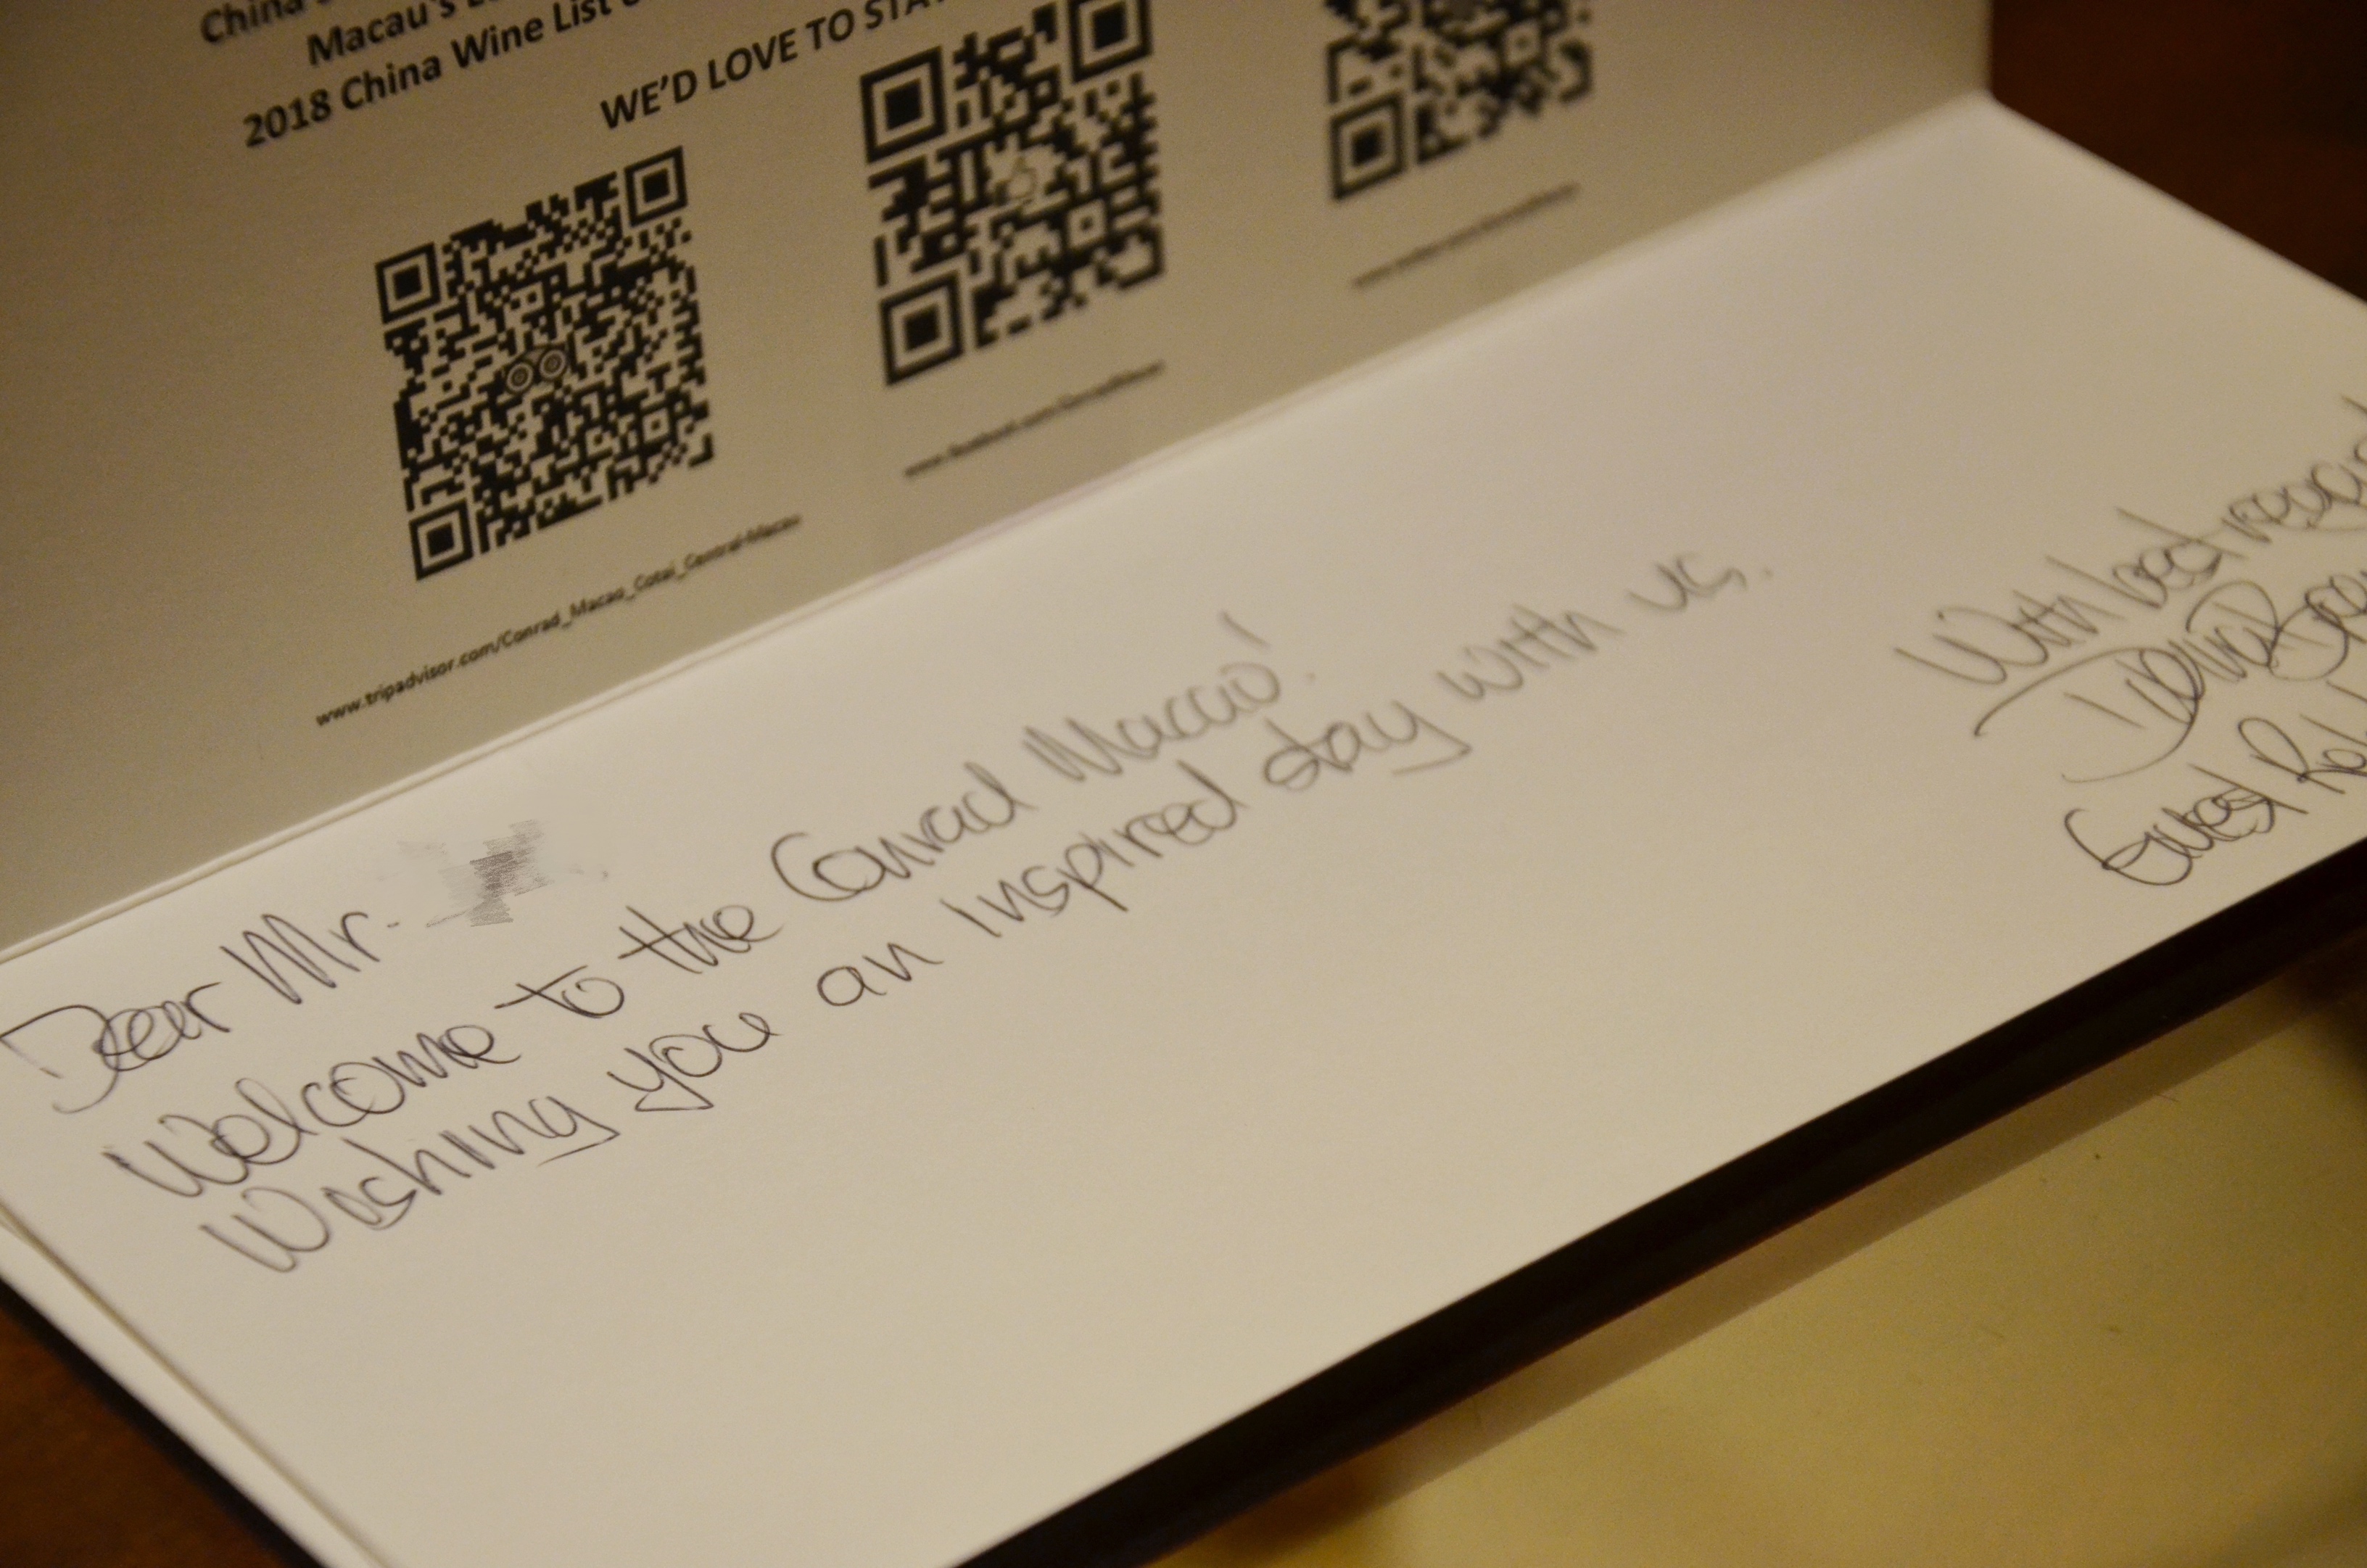 China
Macau's
2018 China Wine List
WE'D LOVE TO STAY
www.tripadvisor.com/Conrad_Macao_Cotai_Central-Macau
www.facebook.com/ConradMacao
Dear Mr.
Welcome to the Conrad Macao!
Wishing you an inspired stay with us.
With best regards
Guest